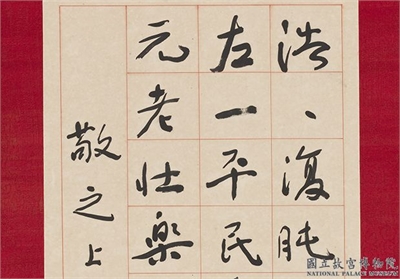 浩、復肫
左一平民
元老壮樂
敬之上
國立故宮博物院
NATIONAL PALACE MUSEUM